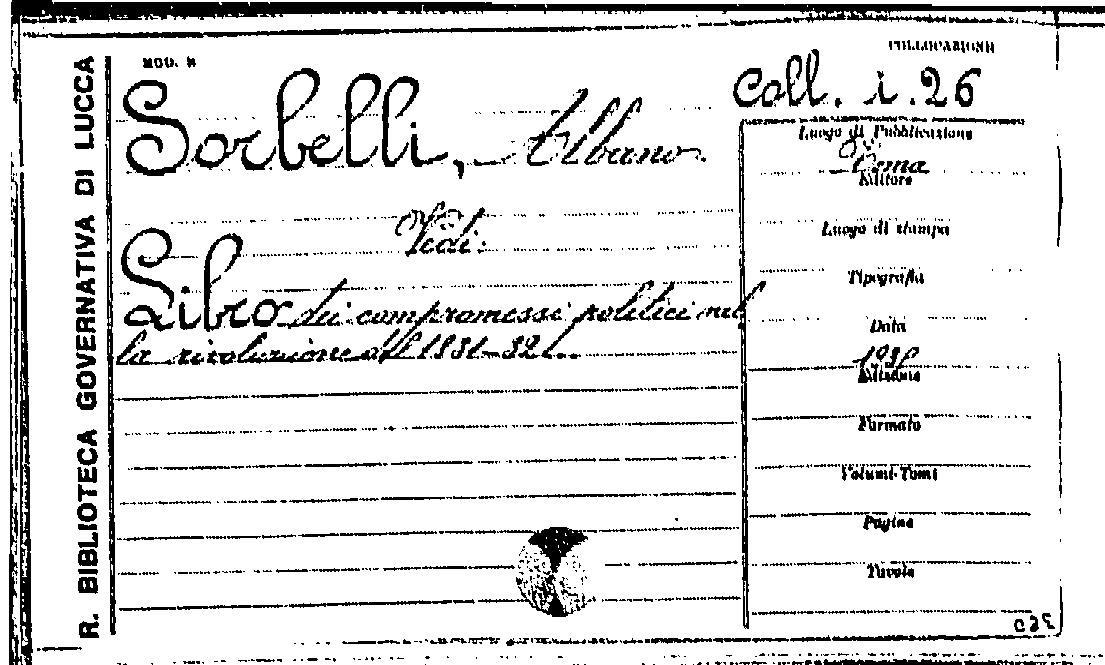 R. BIBLIOTECA GOVERNATIVA DI LUCCA
MOD. B
COLLOCAZIONE
Coll. i. 26
Sorbelli, Albano.
Vedi:
Libro dei compromessi politici nel
la rivoluzione del 1831-32.
Luogo di Pubblicazione
Roma
Editore
Luogo di stampa
Tipografia
Data
Edizione
Formato
Volumi-Tomi
Pagine
Tavole